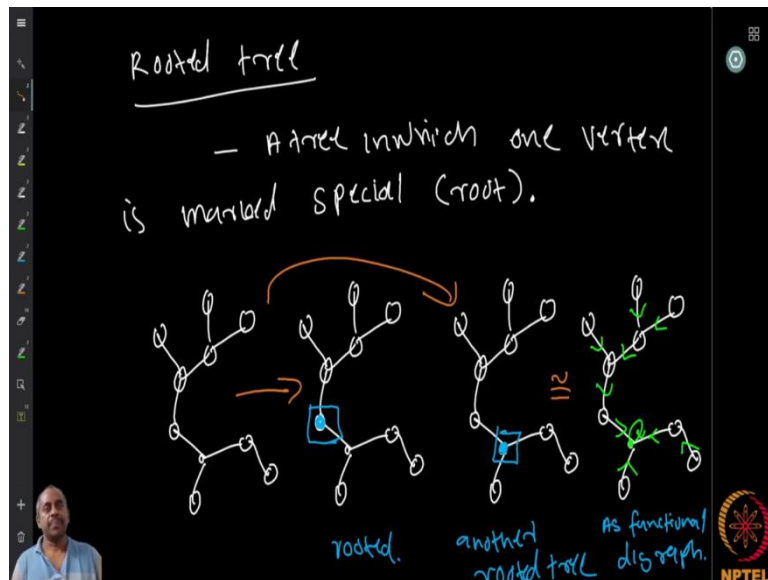 Rooted tree
— A tree in which one vertex
is marked special (root).
≅
rooted.
another
rooted tree
As functional
digraph.
NPTEL